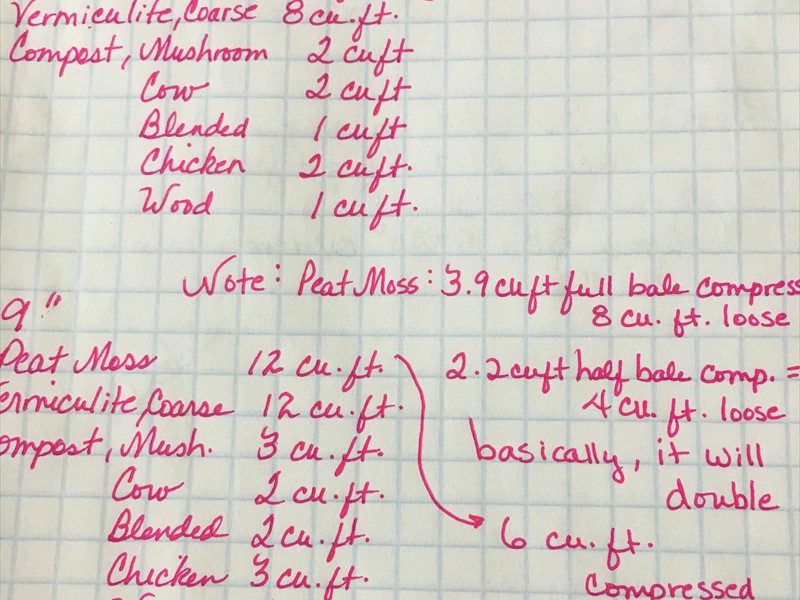 Vermiculite, Coarse 8 cu.ft.
Compost, Mushroom 2 cuft
Cow 2 cuft
Blended 1 cuft
Chicken 2 cuft.
Wood 1 cuft.
Note: Peat Moss: 3.9 cuft full bale compress
8 cu. ft. loose
9"
Peat Moss 12 cu.ft.
ermiculite, Coarse 12 cu.ft.
ompost, Mush. 3 cu.ft.
Cow 2 cu.ft.
Blended 2 cu.ft.
Chicken 3 cu.ft.
2.2 cuft half bale comp. =
4 cu. ft. loose
basically, it will
double
6 cu.ft.
compressed